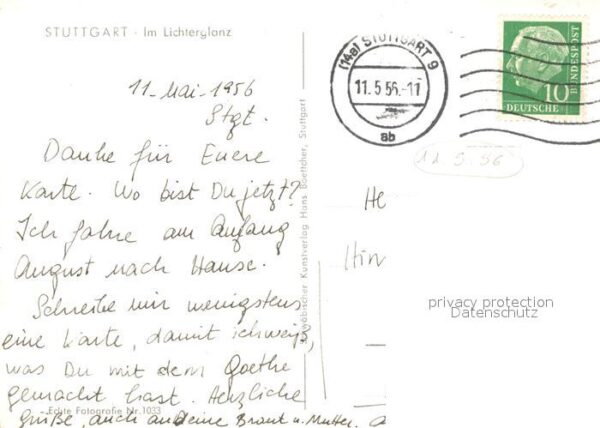 STUTTGART · Im Lichterglanz
11. Mai. 1956
Stgt.
Danke für Euere
Karte. Wo bist Du jetzt?
Ich fahre am Anfang
August nach Hause.
Schreibe mir wenigstens
eine Karte, damit ich weiß,
was Du mit dem Goethe
gemacht hast. Herzliche
Grüße, auch an Deine Braut u. Mutter.
Echte Fotografie Nr. 1033
Schwäbischer Kunstverlag Hans Boettcher, Stuttgart
(14a) STUTTGART 9
11.5.56.-17
ab
DEUTSCHE
BUNDESPOST
10
11.5.56
He
Hin
privacy protection
Datenschutz